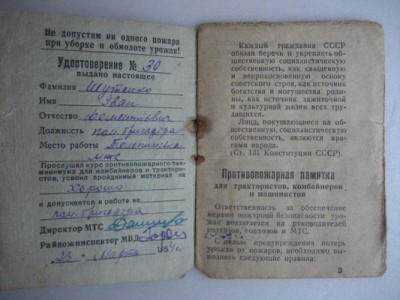 Не допустим ни одного пожара
при уборке и обмолоте урожая!
Удостоверение № 30
выдано настоящее
Фамилия
Имя Иван
Отчество
Должность пом. бригадира
Место работы
мтс
Прослушал курс противопожарного тех-
минимума для комбайнеров и трактори-
стов, усвоил пройденный материал на
хорошо
и допускается к работе на
пом. бригадира
Директор МТС
Райпожинспектор МВД
22 Марта
Каждый гражданин СССР
обязан беречь и укреплять об-
щественную социалистическую
собственность, как священную
и неприкосновенную основу
советского строя, как источник
богатства и могущества роди-
ны, как источник зажиточной
и культурной жизни всех тру-
дящихся.
Лица, покушающиеся на об-
щественную, социалистическую
собственность, являются вра-
гами народа.
(Ст. 131 Конституции СССР).
Противопожарная памятка
для трактористов, комбайнеров
и машинистов
Ответственность за обеспече-
ние мер пожарной безопасности уро-
жая возлагается на руководителей
колхозов, совхозов и МТС.
С целью предупреждения потерь
урожая от пожаров, необходимо вы-
полнять следующие правила:
3